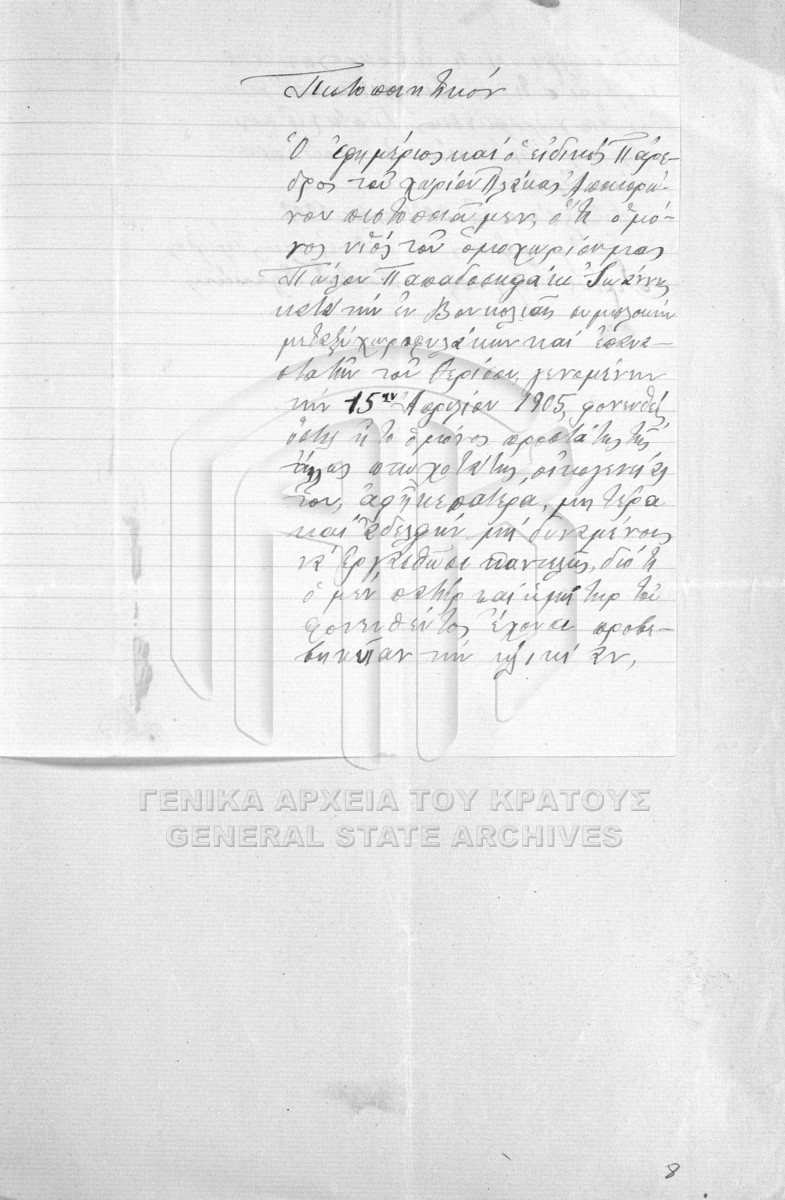 Πιστοποιητικόν
Ὁ ἐφημέριος καί ὁ εἰδικός Πάρε-
δρος τοῦ χωρίου Πλάκας Ἀποκορώ-
νου πιστοποιοῦμεν, ὅτι ὁ μό-
νος υἱός τοῦ ὁμοχωρίου μας
Παύλου Παπαδοσηφάκι Ἰωάννης
κατά τήν ἐν Βουκολιαῖς συμπλοκήν
μεταξύ χωροφυλάκων καί ἐπανα-
στατῶν τοῦ Θερίσου γενομένην
τήν 15ην Ἀπριλίου 1905, φονευθείς
ὅστις ἦτο ὁ μόνος προστάτης τῆς
πτωχοτάτης οἰκογενείας
του, ἀφῆκε πατέρα, μητέρα
καί ἀδελφήν μή δυναμένους
νά ἐργασθῶσι παντελῶς, διότι
ὁ μέν πατήρ καί ἡ μήτηρ τοῦ
φονευθέντος ἔχουσι προβε-
βηκυῖαν τήν ἡλικίαν,
ΓΕΝΙΚΑ ΑΡΧΕΙΑ ΤΟΥ ΚΡΑΤΟΥΣ
GENERAL STATE ARCHIVES
8